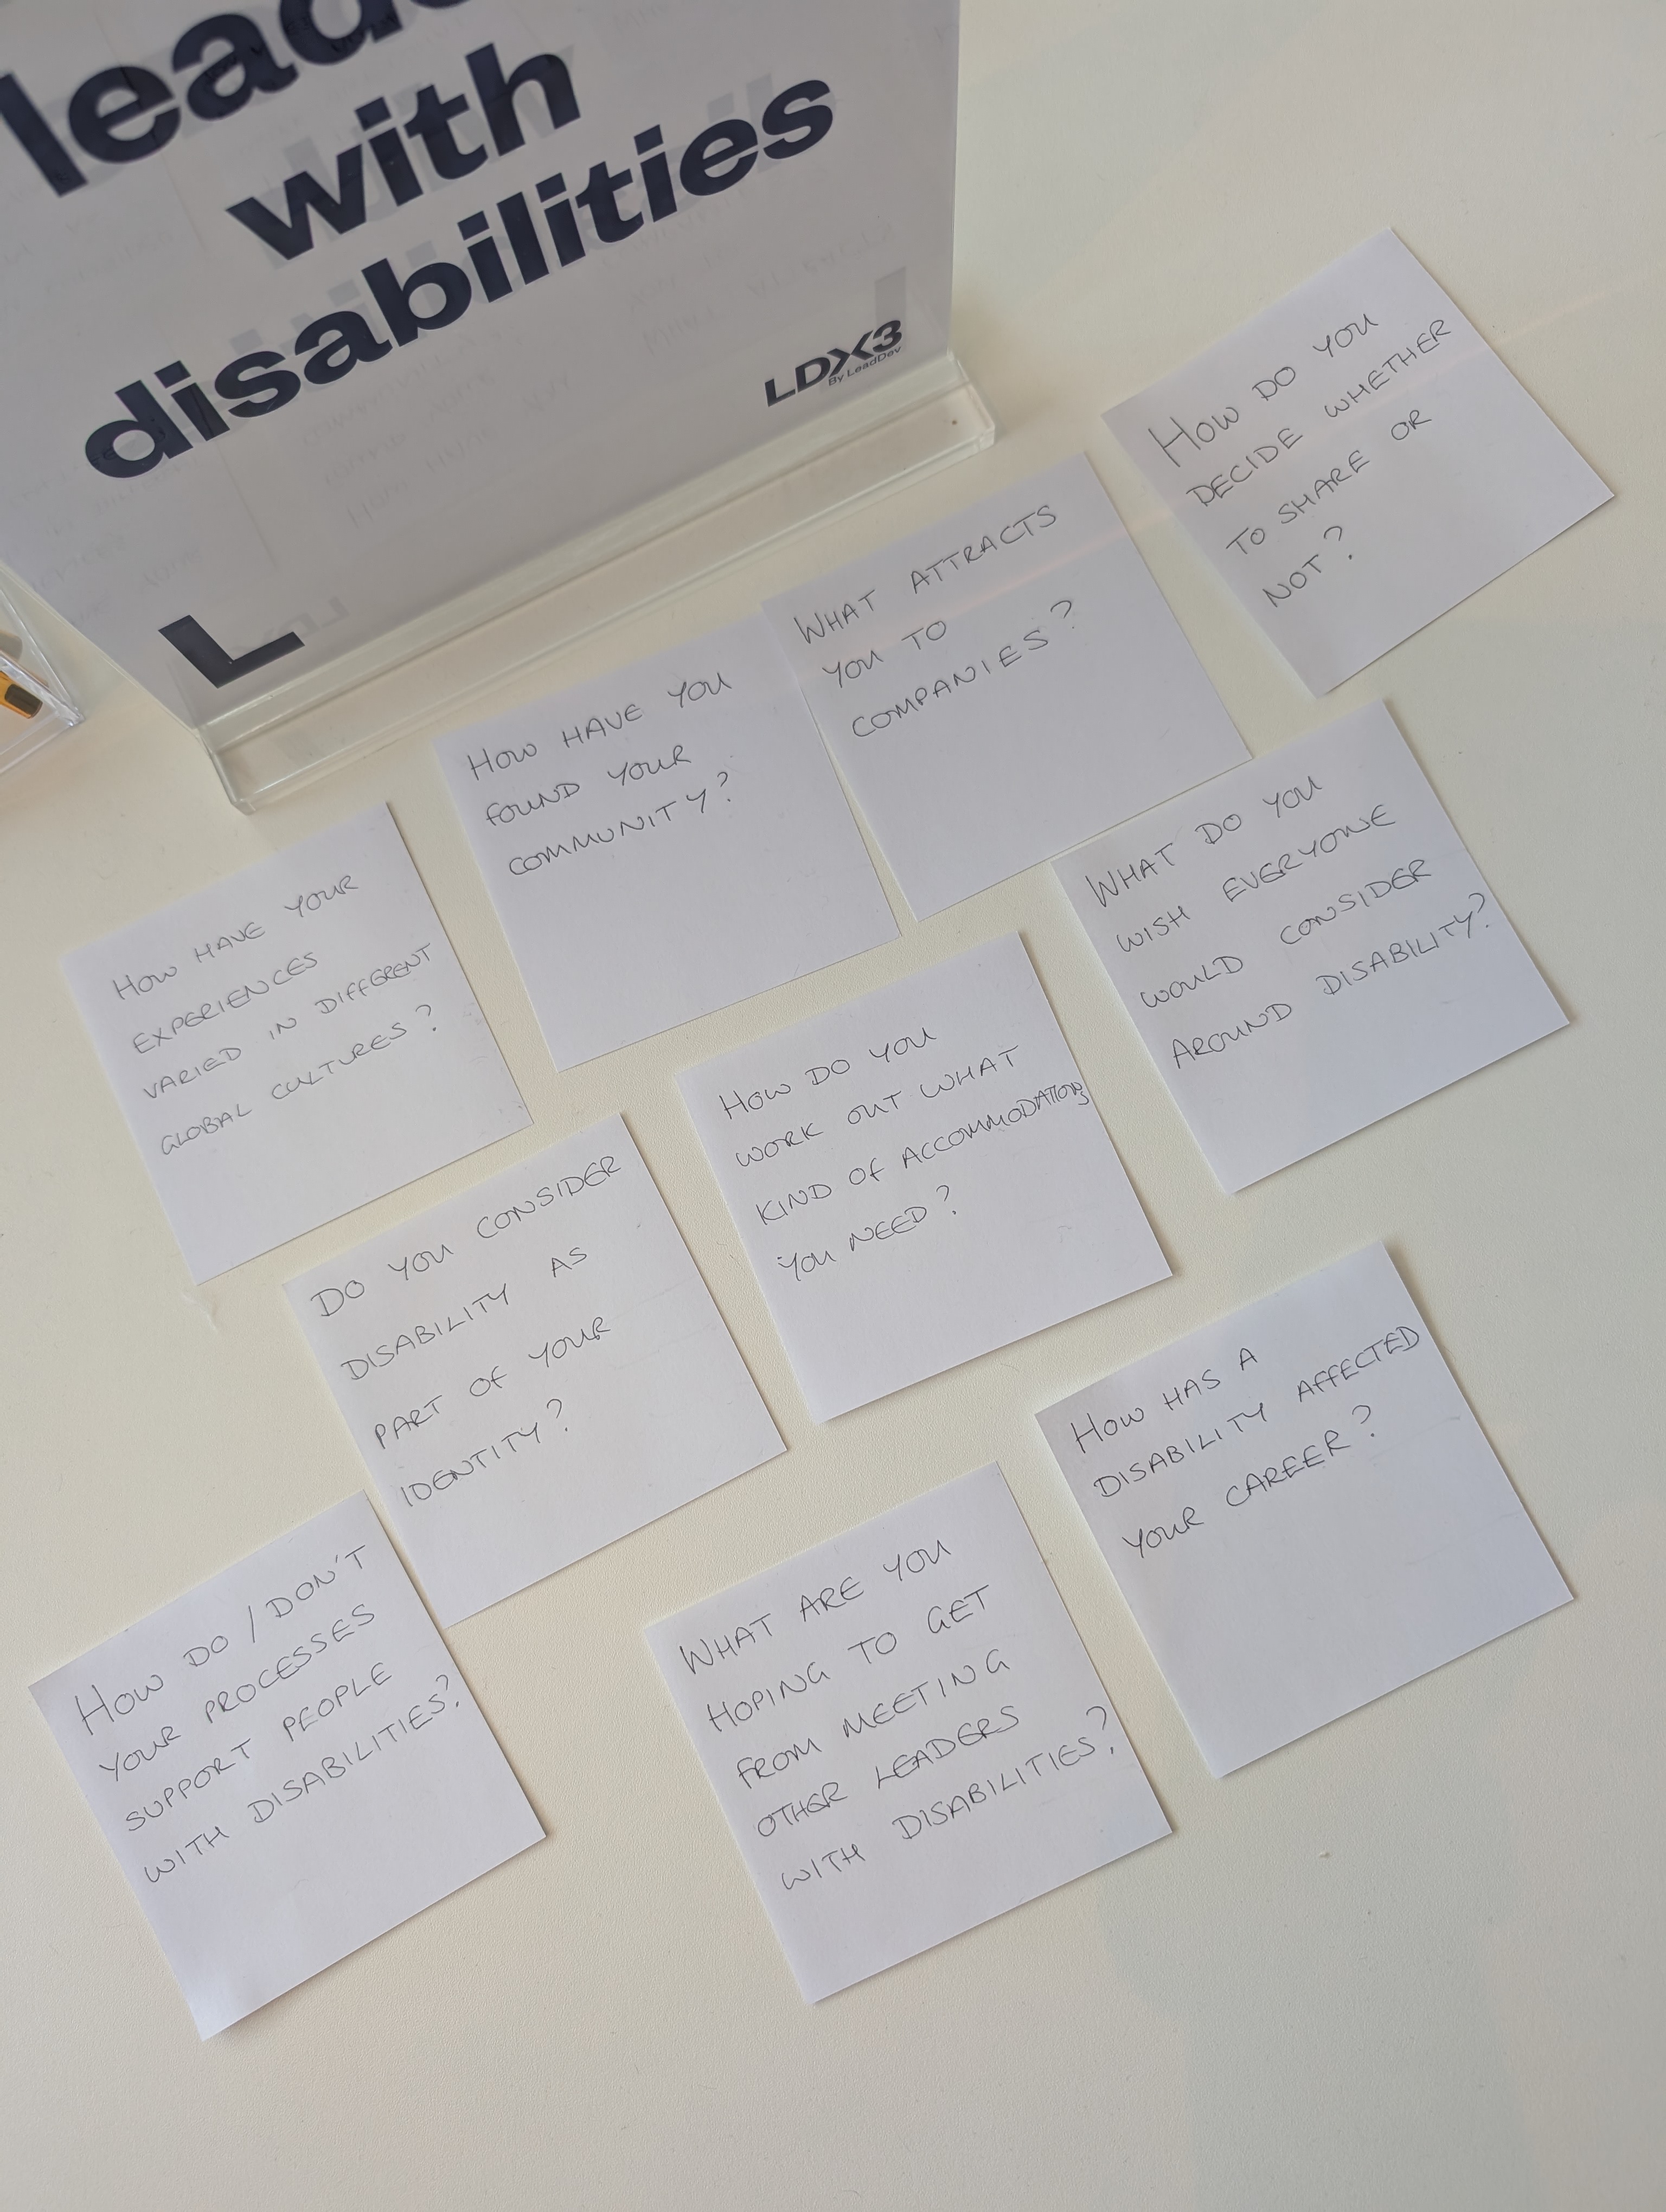 with
disabilities
LDX3
By LeadDev
L
HOW DO YOU
DECIDE WHETHER
TO SHARE OR
NOT?
WHAT ATTRACTS
YOU TO
COMPANIES?
HOW HAVE YOU
FOUND YOUR
COMMUNITY?
HOW HAVE YOUR
EXPERIENCES
VARIED IN DIFFERENT
GLOBAL CULTURES?
WHAT DO YOU
WISH EVERYONE
WOULD CONSIDER
AROUND DISABILITY?
HOW DO YOU
WORK OUT WHAT
KIND OF ACCOMMODATIONS
YOU NEED?
DO YOU CONSIDER
DISABILITY AS
PART OF YOUR
IDENTITY?
HOW HAS A
DISABILITY AFFECTED
YOUR CAREER?
HOW DO / DON'T
YOUR PROCESSES
SUPPORT PEOPLE
WITH DISABILITIES?
WHAT ARE YOU
HOPING TO GET
FROM MEETING
OTHER LEADERS
WITH DISABILITIES?